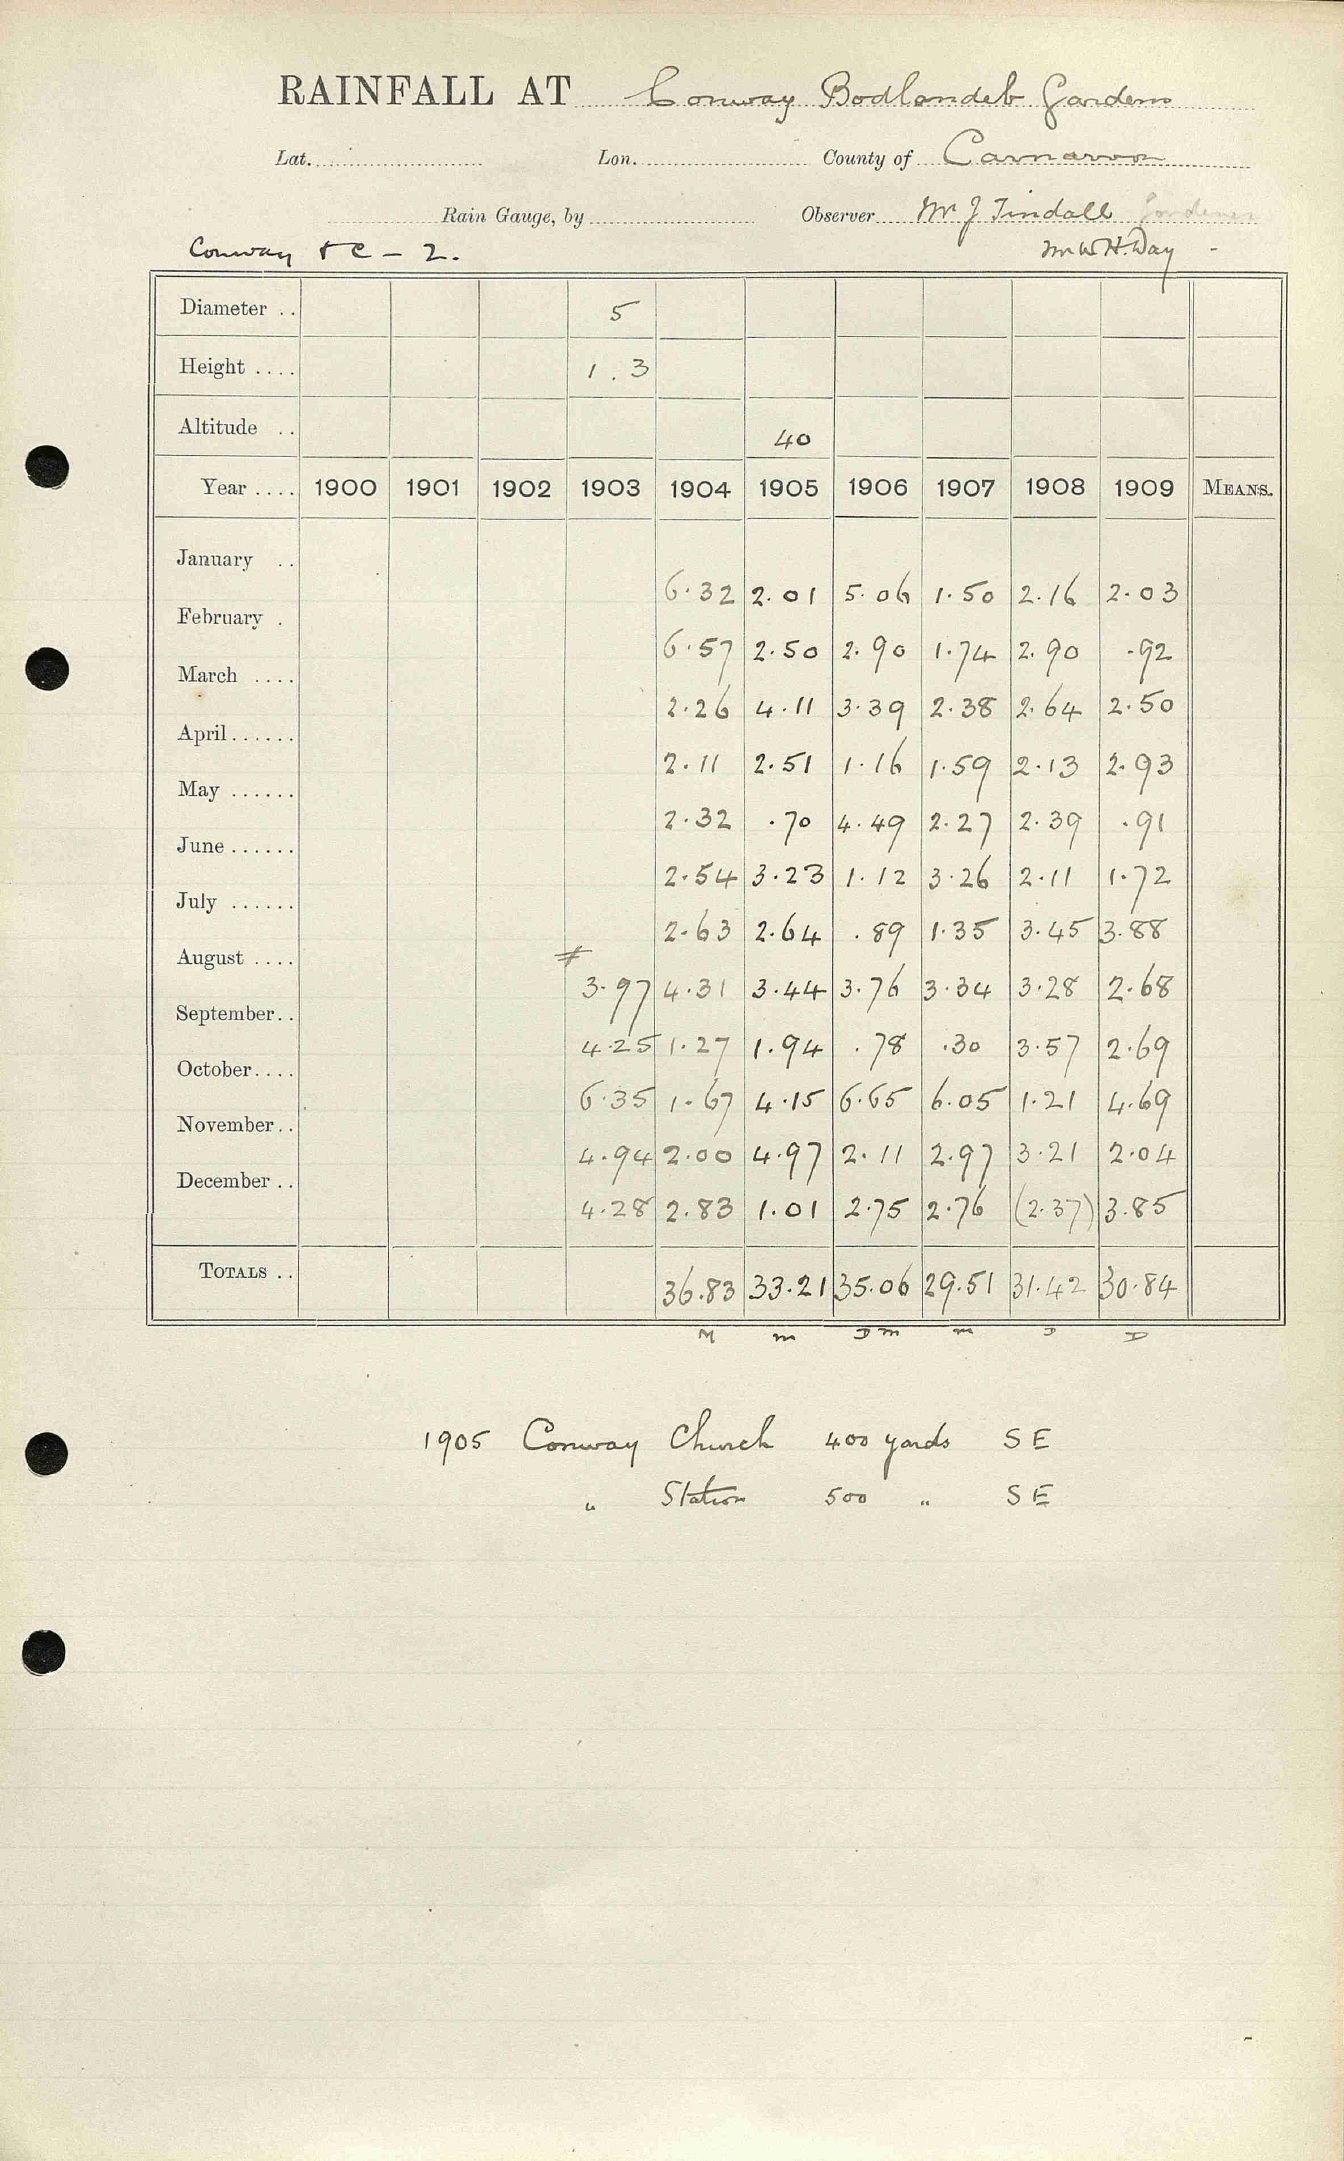 RAINFALL AT Conway Bodlondeb Gardens
Lat. Lon. County of Carnarvon
Rain Gauge, by Observer Mr J Tindall Gardener
Conway & C - 2. Mr W H. Day
Diameter .. 5
Height .... 1.3
Altitude .. 40
Year .... 1900 1901 1902 1903 1904 1905 1906 1907 1908 1909 MEANS.
January .. 6.32 2.01 5.06 1.50 2.16 2.03
February . 6.57 2.50 2.90 1.74 2.90 .92
March .... 2.26 4.11 3.39 2.38 2.64 2.50
April ...... 2.11 2.51 1.16 1.59 2.13 2.93
May ...... 2.32 .70 4.49 2.27 2.39 .91
June ...... 2.54 3.23 1.12 3.26 2.11 1.72
July ...... 2.63 2.64 .89 1.35 3.45 3.88
August .... 3.97 4.31 3.44 3.76 3.34 3.28 2.68
September.. 4.25 1.27 1.94 .78 .30 3.57 2.69
October.... 6.35 1.67 4.15 6.65 6.05 1.21 4.69
November.. 4.94 2.00 4.97 2.11 2.97 3.21 2.04
December .. 4.28 2.83 1.01 2.75 2.76 (2.37) 3.85
TOTALS .. 36.83 33.21 35.06 29.51 31.42 30.84
M m D m m D D
1905 Conway Church 400 yards SE
" Station 500 " SE